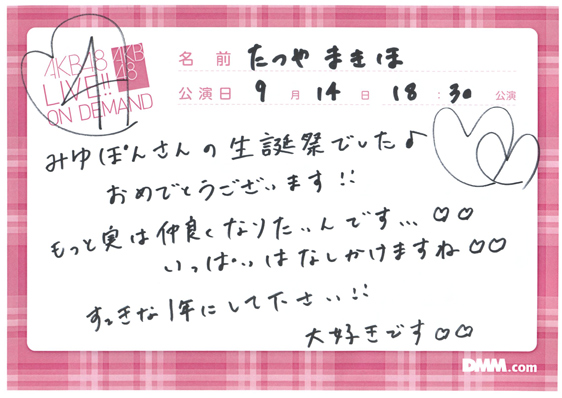 AKB48
LIVE!!
ON DEMAND
AKB
48
名前 たつや まきほ
公演日 9月 14日 18:30 公演
みゆぽんさんの生誕祭でした♪
おめでとうございます!!
もっと実は仲良くなりたいんです… ♡♡
いっぱいはなしかけますね♡♡
すてきな1年にして下さい!!
大好きです♡♡
DMM.com